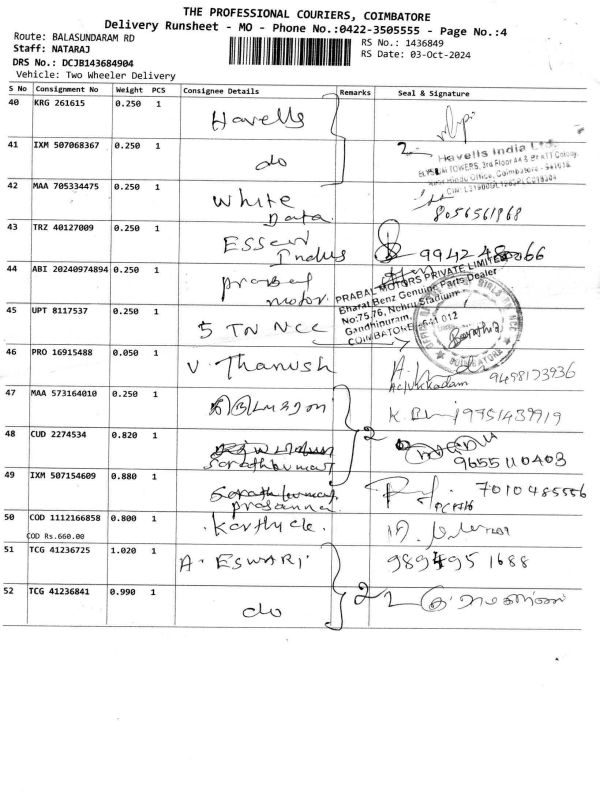 THE PROFESSIONAL COURIERS, COIMBATORE
Delivery Runsheet - MO - Phone No.:0422-3505555 - Page No.:4
Route: BALASUNDARAM RD
RS No.: 1436849
Staff: NATARAJ
RS Date: 03-Oct-2024
DRS No.: DCJB143684904
Vehicle: Two Wheeler Delivery
S No Consignment No Weight PCS Consignee Details Remarks Seal & Signature
40 KRG 261615 0.250 1 Havells
41 IXM 507068367 0.250 1 do 2
Havells India Ltd.
42 MAA 705334475 0.250 1 White Data 8056561868
43 TRZ 40127009 0.250 1
44 ABI 20240974894 0.250 1 prabal motor
PRABAL MOTORS PRIVATE LIMITED
Bharat Benz Genuine Parts Dealer
No:75,76, Nehru Stadium
Gandhipuram,
COIMBATORE - 641 012
45 UPT 8117537 0.250 1 5 TN NCC
COIMBATORE
46 PRO 16915488 0.050 1 V. Thanush 9498173936
47 MAA 573164010 0.250 1
48 CUD 2274534 0.820 1 Sarathkumar 2 9655110403
49 IXM 507154609 0.880 1 prasanna 7010485556
50 COD 1112166858 0.800 1
COD Rs.660.00
51 TCG 41236725 1.020 1 A. ESWARI 9894951688
52 TCG 41236841 0.990 1 do 2